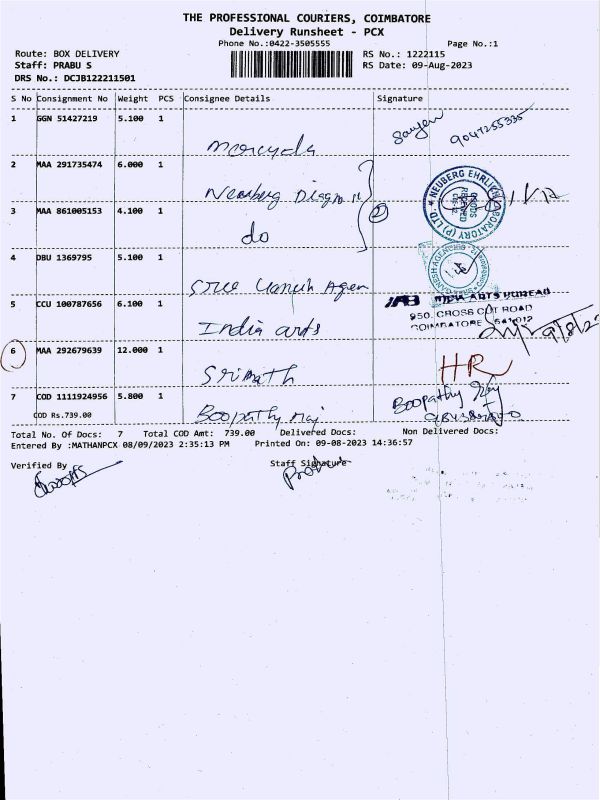 THE PROFESSIONAL COURIERS, COIMBATORE
Delivery Runsheet - PCX
Phone No.:0422-3505555 Page No.:1
Route: BOX DELIVERY RS No.: 1222115
Staff: PRABU S RS Date: 09-Aug-2023
DRS No.: DCJB122211501
S No Consignment No Weight PCS Consignee Details Signature
1 GGN 51427219 5.100 1
9047255335
2 MAA 291735474 6.000 1
Neuberg
NEUBERG EHRLICH LABORATORY (P) LTD
GOODS RECEIVED
3 MAA 861005153 4.100 1
do
2
4 DBU 1369795 5.100 1
Agen
5 CCU 100787656 6.100 1
India arts
IAB INDIA ARTS BUREAU
950, CROSS CUT ROAD
COIMBATORE 641012
9/8/23
6 MAA 292679639 12.000 1
Srimath
HR
7 COD 1111924956 5.800 1
COD Rs.739.00
Boopathy Raj
Boopathy Raj
Total No. Of Docs: 7 Total COD Amt: 739.00 Delivered Docs: Non Delivered Docs:
Entered By :MATHANPCX 08/09/2023 2:35:13 PM Printed On: 09-08-2023 14:36:57
Verified By Staff Signature